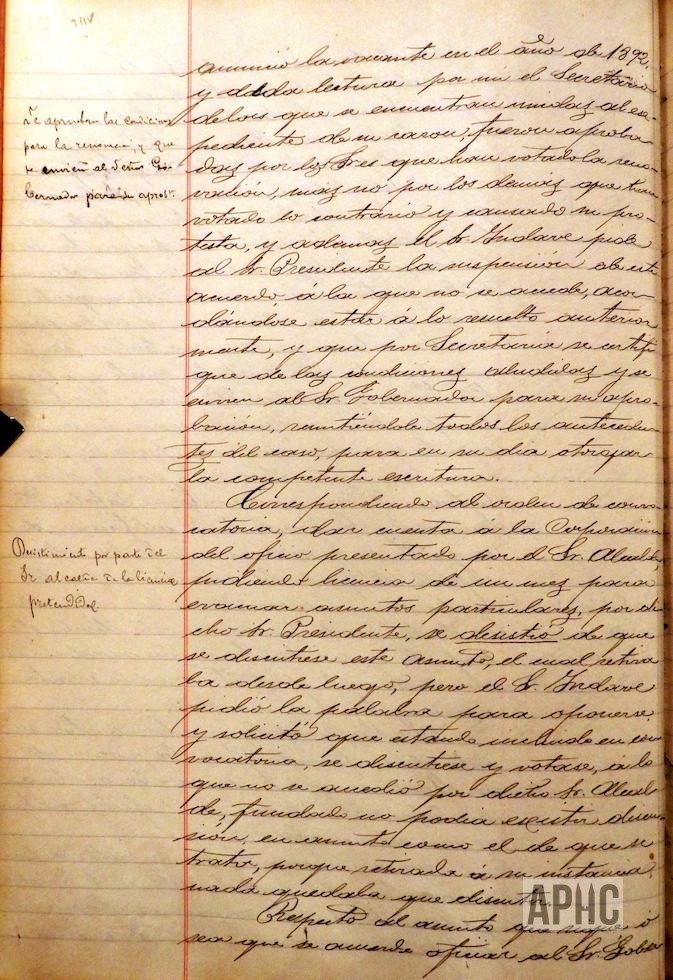 anunció la vacante en el año de 1892,
y dada lectura por mi el Secretario
de los que se encuentran unidas al es-
pediente de su razon, fueron aproba-
das por los Sres que han votado la reno-
vación, mas no por los demas que han
votado lo contrario y causado su pro-
testa, y ademas el Sr. Indave pide
al Sr. Presidente la suspensión de este
acuerdo á la que no se accede, acor-
dándose estar á lo resuelto anterior-
mente, y que por Secretaria se certifi-
que de las condiciones aludidas y se
envien al Sr. Gobernador para su apro-
bación, remitiéndole todos los anteceden-
tes del caso, para en su dia otorgar
la competente escritura.
Se aprueban las condiciones
para la renovon, y que
se envien al Señor Go-
bernador para su aprobon.
Correspondiendo al orden de convo-
catoria, dar cuenta á la Corporación
del oficio presentado por el Sr. Alcalde
pidiendo licencia de un mes para
evacuar asuntos particulares, por di-
cho Sr. Presidente, se desistió de que
se discutiese este asunto, el cual retira-
ba desde luego, pero el Sr. Indave
pidió la palabra para oponerse,
y solicitó que estando incluido en con-
vocatoria, se discutiese y votase, á lo
que no se accedió por dicho Sr. Alcal-
de, fundado no podia existir discu-
sión en asunto como el de que se
trata, porque retirada á su instancia,
nada quedaba que discutir.
Desistimiento por parte del
Sr. alcalde de la licencia
pretendida.
Respecto al asunto que sigue ó
sea que se acuerde oficiar al Sr. Gober
APHC